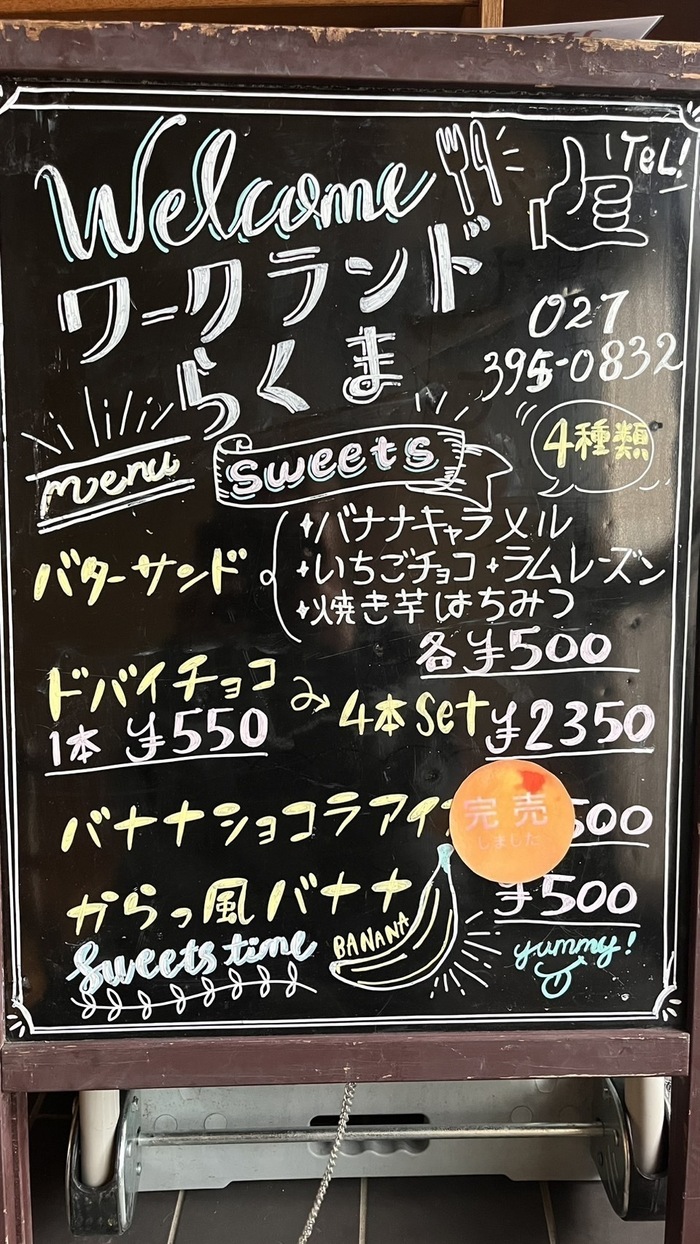 Welcome
TeL!
ワークランド
らくま
027
395-0832
menu
sweets
4種類
バターサンド
バナナキャラメル
いちごチョコ ラムレーズン
焼き芋はちみつ
各¥500
ドバイチョコ
1本 ¥550
4本set ¥2350
バナナショコラアイ
完売
しました
500
からっ風バナナ ¥500
Sweets time
BANANA
yummy!